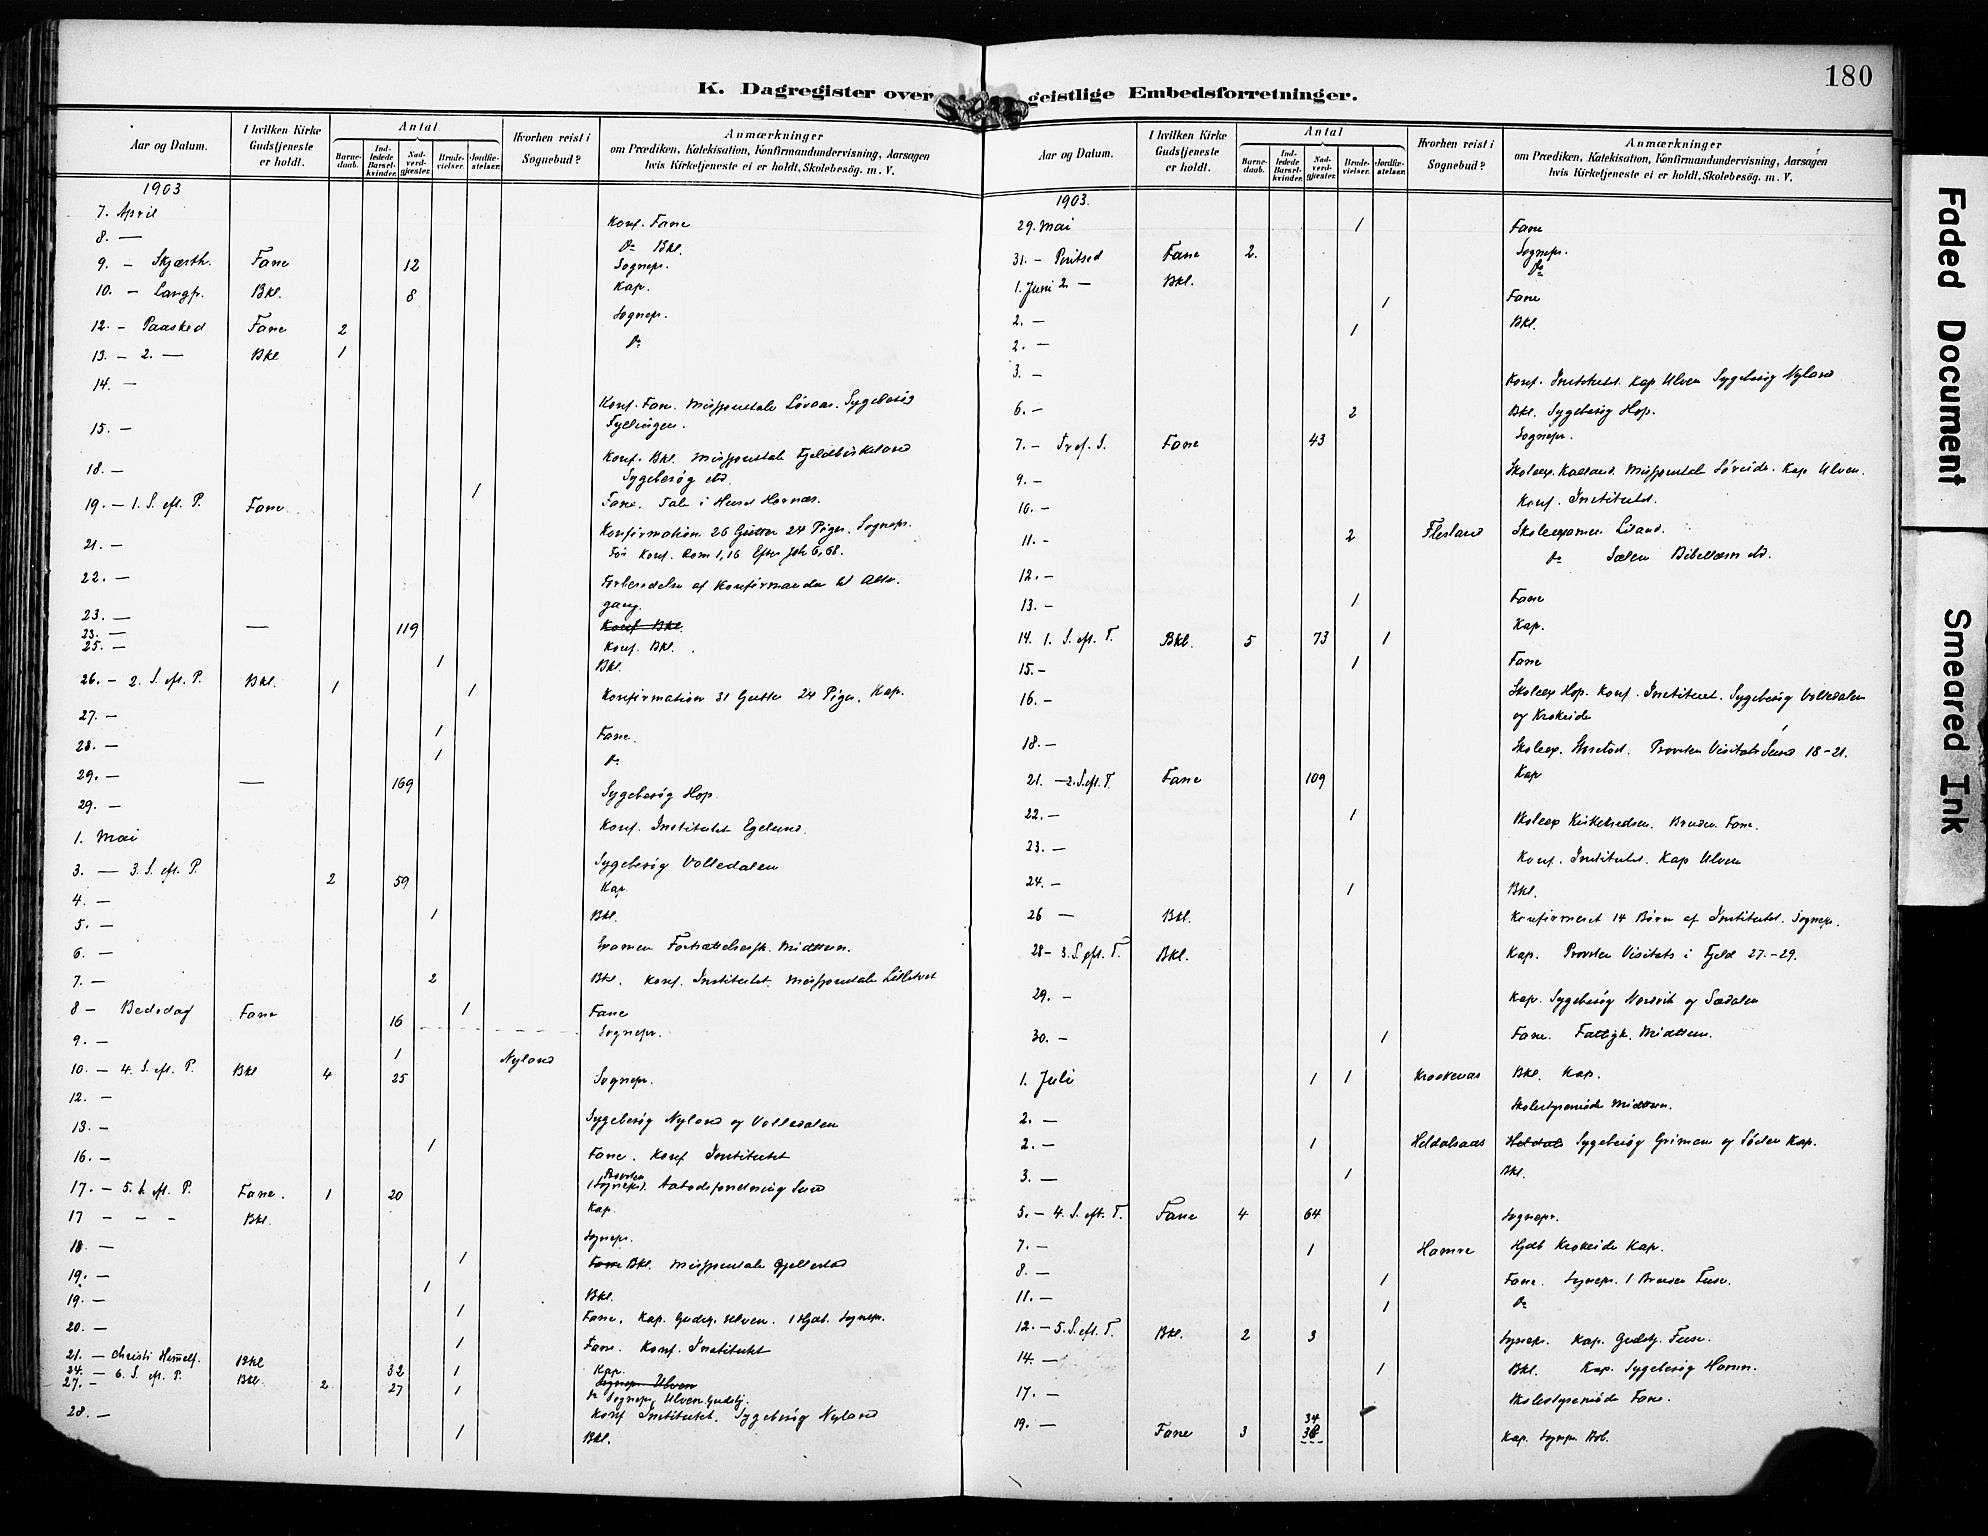 180
K. Dagregister over geistlige Embedsforretninger.
Aar og Datum. | I hvilken Kirke Gudstjeneste er holdt. | Antal | Barnedaab. | Indledede Barselkvinder. | Nadverdgjæster. | Brudevielser. | Jordfæstelser. | Hvorhen reist i Sognebud? | Anmærkninger om Prædiken, Katekisation, Konfirmandundervisning, Aarsagen hvis Kirketjeneste ei er holdt, Skolebesøg. m. V.
1903
7. April Konf. Fane
8. — Do Bkl.
9. - Skjærth. Fane 12 Sognepr.
10. - Langfr. Bkl. 8 Kap.
12. - Paasked Fane 2 Sognepr.
13. - 2. — Bkl 1 Do
14. — Konf. Fane. Sygebesøg
15. — Konf. Bkl.
Sygebesøg
18. — 1 Fane. Tale i Huset
19. - 1. S. eft. P. Fane Konfirmation 26 Gutter 24 Piger. Sognepr.
Før Konf. Rom 1,16 Efter Joh 6,68.
21. — Forberedelse af Konfirmander til Alter-
gang.
22. —
23. — — 119 Konf Bkl.
23. — Konf. Bkl.
25. — 1 Bkl.
26. - 2. S. eft. P. Bkl. 1 1 Konfirmation 31 Gutter 24 Piger. Kap.
27. — 1 Fane.
28. — 1 Do
29. — — 169
29. — Sygebesøg Hop.
1. Mai Konf. Institutet
3. — 3. S. eft. P. 2 59 Sygebesøg Volledalen
Kap.
4. — 1 Bkl.
5. —
6. — Examen Midttun.
7. — 2 Bkl. Konf. Institutet.
8 — Bededag Fane 16 1 Fane
Sognepr.
9. — 1 Nyland
10. — 4. S. eft. P. Bkl 4 25 Sognepr.
12. — Sygebesøg Nyland og Volledalen
13. — 1 Fane. Konf Institutet
16. —
17. — 5. S. eft. P. Fane. 1 20 Kap.
17 - - - Bkl. Sognepr.
18. — 1 Fane Bkl.
19. — 1 Bkl.
19. — 1 Fane. Kap. Gudstj. Ulven. Sognepr.
20. — 1 Fane. Konf. Institutet
21. — Christi Himmelf. Bkl 32 1 Kap.
24. — 6. S. eft. P. Bkl. 2 27 1 Sognepr. Ulven
Do Sognepr. Ulven Gudstj.
27. — Konf Institutet. Sygebesøg Nyland
28. — 1 Bkl.
Aar og Datum. | I hvilken Kirke Gudstjeneste er holdt. | Antal | Barnedaab. | Indledede Barselkvinder. | Nadverdgjæster. | Brudevielser. | Jordfæstelser. | Hvorhen reist i Sognebud? | Anmærkninger om Prædiken, Katekisation, Konfirmandundervisning, Aarsagen hvis Kirketjeneste ei er holdt, Skolebesøg. m. V.
1903.
29. Mai 1 Fane
31. - Pintsed Fane 2. Sognepr.
1. Juni 2. — Bkl. Do
2. — 1 Fane
2. — 1 Bkl.
3. — Konf. Institutet. Kap Ulven Sygebesøg Nyland
6. — 2 Bkl. Sygebesøg Hop.
7. - Tref. S. Fane 43 Sognepr.
9. — Kap Ulven.
10. — Konf. Institutet.
11. — 2 Flesland Skoleexamen
12. — Do Sælen
13. — 1 Fane
14. 1. S. eft. T. Bkl. 5 73 1 Kap.
15. — 1 Fane
16. — Skoleex Hop. Konf. Institutet. Sygebesøg Volledalen
og Krokeide
18. — Skoleex. Provsten Visitats Sund 18-21.
21. — 2. S. eft. T. Fane 109 Kap
22. — 1 Skoleex Fane.
23. — Konf. Institutet. Kap Ulven
24. — 1 Bkl.
26 — Bkl. Konfirmeret 14 Børn af Institutet. Sognepr.
28 - 3. S. eft. T. Bkl. Kap. Provsten Visitats i Fjeld 27.-29.
29. — Kap. Sygebesøg Nordvik og Sædalen
30. — 1 Fane. Fattigk. Midttun.
1. Juli 1 1 Krokenes Bkl. Kap.
2. — Skolestyremøde Midttun.
2. — 1 Heldalsaas Heldal Sygebesøg Grimen og Kap.
3. — 1 Bkl.
5. — 4. S. eft. T. Fane 4 64 Sognepr.
7. — 1 Hamre Hjdb Krokeide Kap.
8. — 1 Fane. Sognepr.
11. — 1 Do
12. — 5. S. eft. T. Bkl. 2 3 Sognepr. Kap. Gudstj.
14. — 1 Bkl. Kap. Sygebesøg
17. — Skolestyremøde Fane.
19. — Fane 3 34 Kap. Sognepr.
Faded Document
Smeared Ink